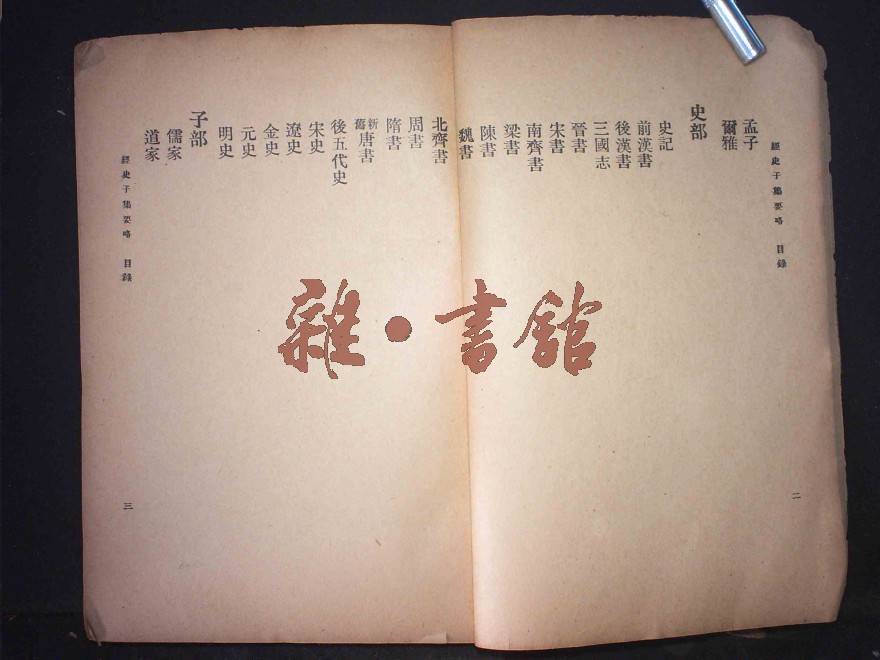 經史子集要略 目錄
二
孟子
爾雅
史部
史記
前漢書
後漢書
三國志
晉書
宋書
南齊書
梁書
陳書
魏書
北齊書
周書
隋書
新舊唐書
後五代史
宋史
遼史
金史
元史
明史
子部
儒家
道家
經史子集要略 目錄
三
雜·書館